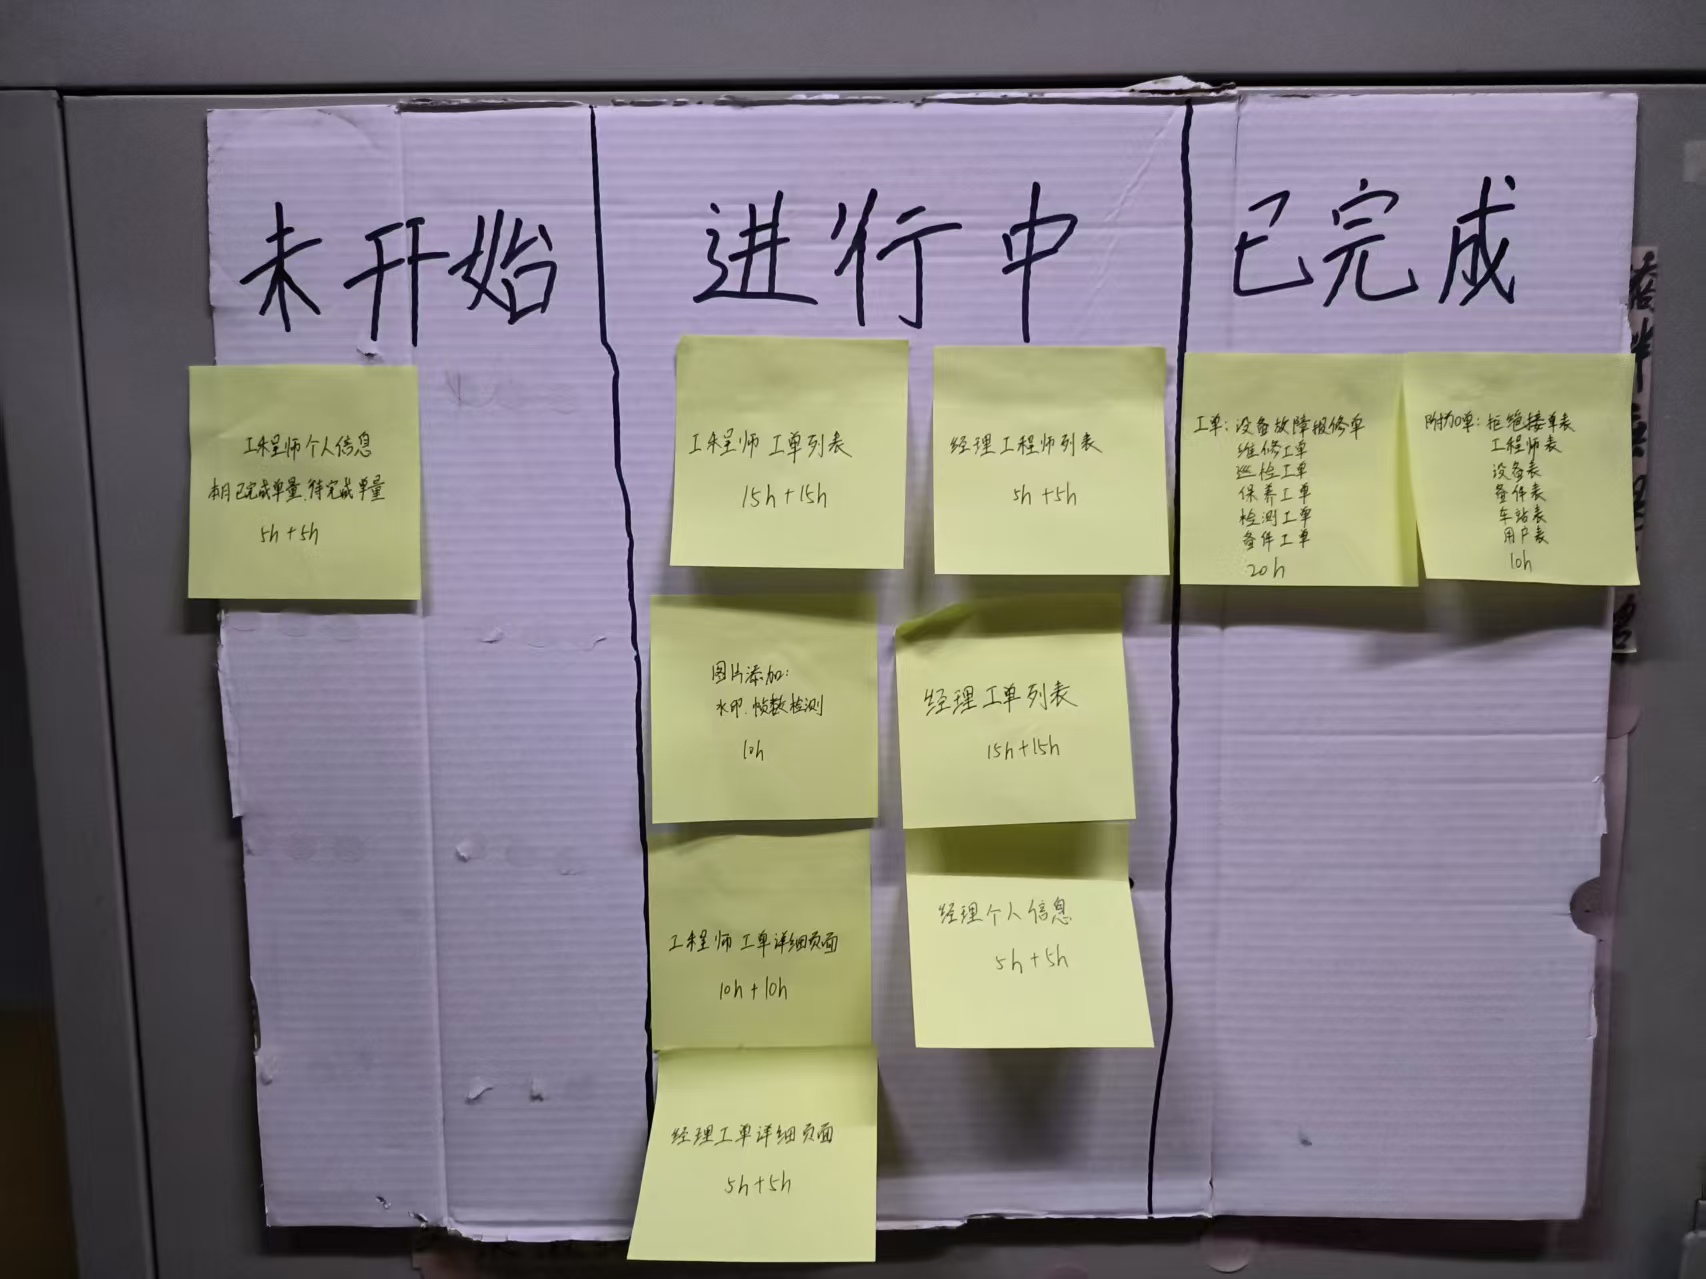 未开始
进行中
已完成
工程师个人信息
本月已完成单量、待完成单量
5h+5h
工程师工单列表
15h+15h
经理工程师列表
5h+5h
图片添加:
水印、帧数检测
10h
经理工单列表
15h+15h
工程师工单详细页面
10h+10h
经理个人信息
5h+5h
经理工单详细页面
5h+5h
工单:设备故障报修单
维修工单
巡检工单
保养工单
检测工单
备件工单
20h
附加单:拒绝接单表
工程师表
设备表
备件表
车站表
用户表
10h